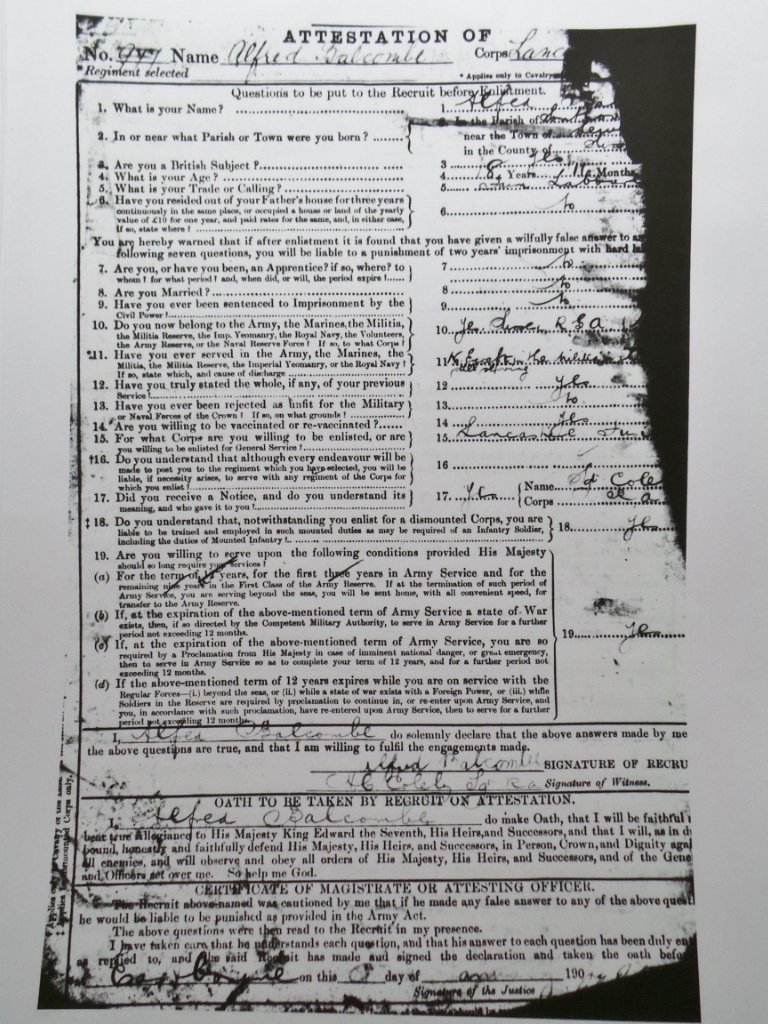 ATTESTATION OF
No. 947 Name Alfred Balcombe Corps Lanc
*Regiment selected * Applies only to Cavalry
Questions to be put to the Recruit before Enlistment.
1. What is your Name? 1. Alfred
2. In or near what Parish or Town were you born? In the Parish of
near the Town of
in the County of
3. Are you a British Subject? 3 Yes
4. What is your Age? 4 18 Years 11 Months
5. What is your Trade or Calling? 5 Labo
6. Have you resided out of your Father's house for three years
continuously in the same place, or occupied a house or land of the yearly
value of £10 for one year, and paid rates for the same, and, in either case,
If so, state where? 6. No
You are hereby warned that if after enlistment it is found that you have given a wilfully false answer to a
following seven questions, you will be liable to a punishment of two years' imprisonment with hard la
7. Are you, or have you been, an Apprentice? if so, where? to
whom? for what period? and, when did, or will, the period expire? 7 No
8. Are you Married? 8 No
9. Have you ever been sentenced to Imprisonment by the
Civil Power? 9 No
10. Do you now belong to the Army, the Marines, the Militia,
the Militia Reserve, the Imp. Yeomanry, the Royal Navy, the Volunteers,
the Army Reserve, or the Naval Reserve Force? If so, to what Corps? 10. Yes
*11. Have you ever served in the Army, the Marines, the
Militia, the Militia Reserve, the Imperial Yeomanry, or the Royal Navy?
If so, state which, and cause of discharge 11 Except in the militia
12. Have you truly stated the whole, if any, of your previous
Service? 12 Yes
13. Have you ever been rejected as unfit for the Military
or Naval Forces of the Crown? If so, on what grounds? 13. No
14. Are you willing to be vaccinated or re-vaccinated? 14 Yes
15. For what Corps are you willing to be enlisted, or are
you willing to be enlisted for General Service? 15. Lancashire Fus
†16. Do you understand that although every endeavour will be
made to post you to the regiment which you have selected, you will be
liable, if necessity arises, to serve with any regiment of the Corps for
which you enlist? 16
17. Did you receive a Notice, and do you understand its
meaning, and who gave it to you? 17. Yes { Name Cole
Corps
‡18. Do you understand that, notwithstanding you enlist for a dismounted Corps, you are
liable to be trained and employed in such mounted duties as may be required of an Infantry Soldier,
including the duties of Mounted Infantry? 18. Yes
19. Are you willing to serve upon the following conditions provided His Majesty
should so long require your services?
(a) For the term of 12 years, for the first three years in Army Service and for the
remaining nine years in the First Class of the Army Reserve. If at the termination of such period of
Army Service, you are serving beyond the seas, you will be sent home, with all convenient speed, for
transfer to the Army Reserve.
(b) If, at the expiration of the above-mentioned term of Army Service a state of War
exists, then, if so directed by the Competent Military Authority, to serve in Army Service for a further
period not exceeding 12 months.
(c) If, at the expiration of the above-mentioned term of Army Service, you are so
required by a Proclamation from His Majesty in case of imminent national danger, or great emergency,
then to serve in Army Service so as to complete your term of 12 years, and for a further period not
exceeding 12 months.
19. Yes
(d) If the above-mentioned term of 12 years expires while you are on service with the
Regular Forces—(i.) beyond the seas, or (ii.) while a state of war exists with a Foreign Power, or (iii.) while
Soldiers in the Reserve are required by proclamation to continue in, or re-enter upon Army Service, and
you, in accordance with such proclamation, have re-entered upon Army Service, then to serve for a further
period not exceeding 12 months.
I, Alfred Balcombe do solemnly declare that the above answers made by me
the above questions are true, and that I am willing to fulfil the engagements made.
Alfred Balcombe SIGNATURE OF RECRU
Signature of Witness.
OATH TO BE TAKEN BY RECRUIT ON ATTESTATION.
I, Alfred Balcombe do make Oath, that I will be faithful
bear true Allegiance to His Majesty King Edward the Seventh, His Heirs, and Successors, and that I will, as in d
bound, honestly and faithfully defend His Majesty, His Heirs, and Successors, in Person, Crown, and Dignity aga
all enemies, and will observe and obey all orders of His Majesty, His Heirs, and Successors, and of the Gene
and Officers set over me. So help me God.
CERTIFICATE OF MAGISTRATE OR ATTESTING OFFICER.
The Recruit above-named was cautioned by me that if he made any false answer to any of the above quest
he would be liable to be punished as provided in the Army Act.
The above questions were then read to the Recruit in my presence.
I have taken care that he understands each question, and that his answer to each question has been duly en
as replied to, and the said Recruit has made and signed the declaration and taken the oath befor
on this day of 190
Signature of the Justice